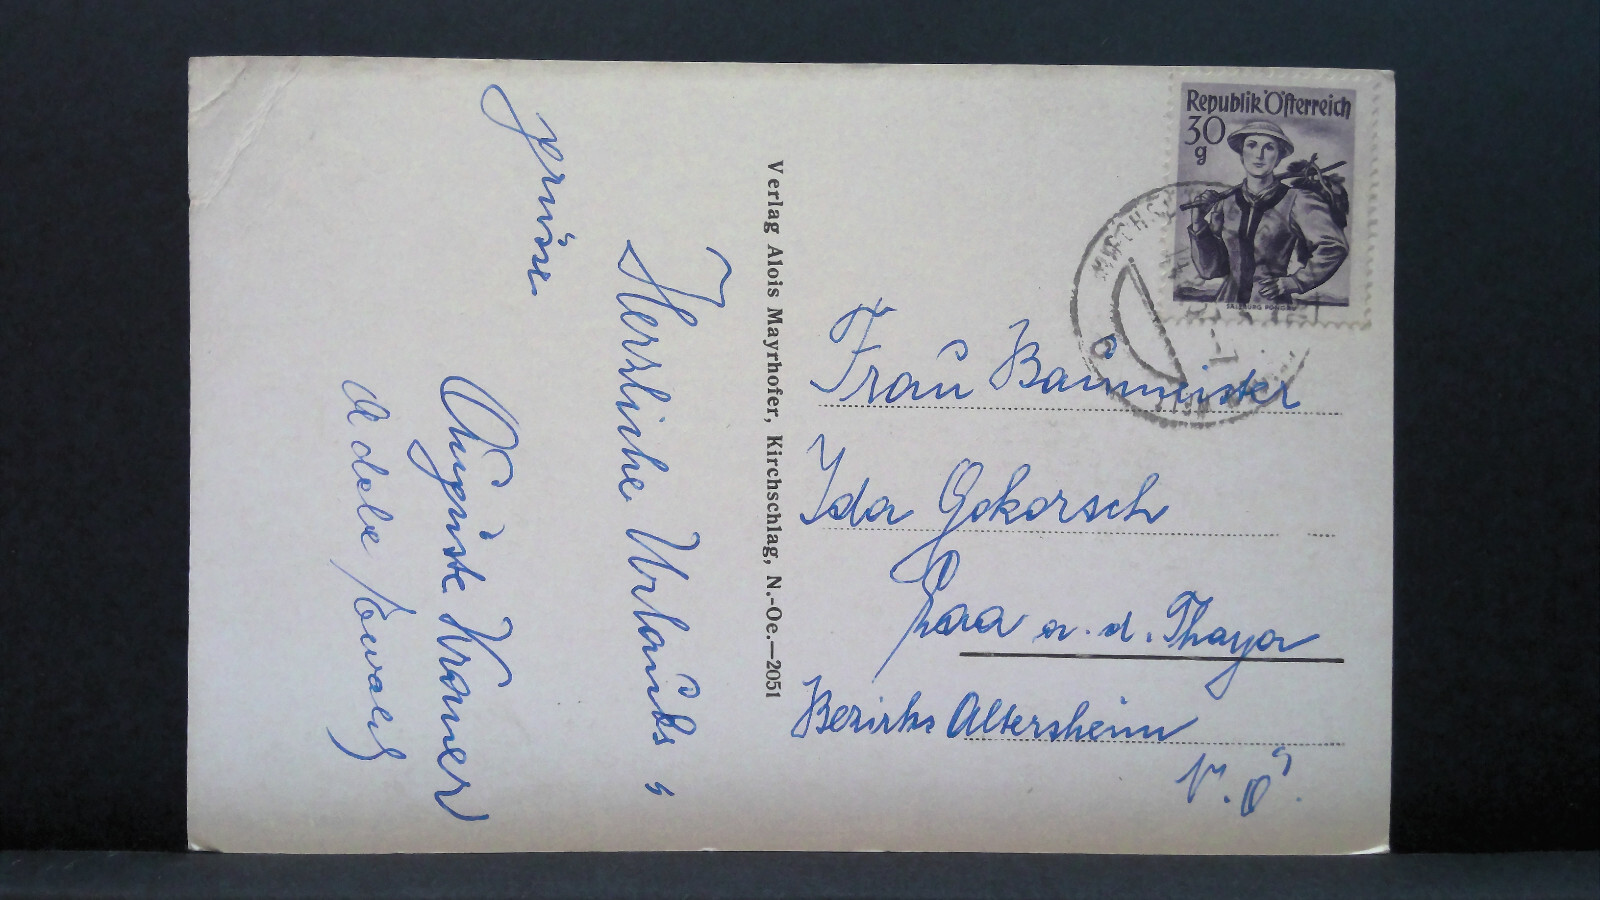 Herzliche Urlaubs-
grüsse
Auguste Kramer
Adele
Verlag Alois Mayrhofer, Kirchschlag, N.-Oe.—2051
Republik Österreich
30
g
SALZBURG PONGAU
Frau Baumeister
Ida
Laa a. d. Thaya
Bezirks Altersheim
N.Ö.